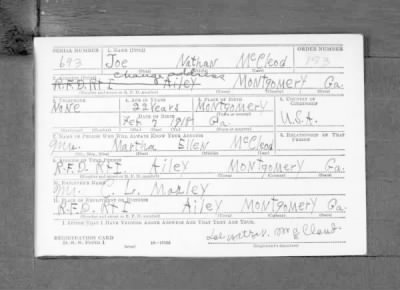 SERIAL NUMBER 1. NAME (Print) ORDER NUMBER
693 Joe Nathan McCleod
(First) (Middle) (Last)
change address
R.F.D. Rt 1 Ailey Montgomery Ga.
3. TELEPHONE 4. AGE IN YEARS 5. PLACE OF BIRTH 6. COUNTRY OF CITIZENSHIP
None 22 Years Montgomery
DATE OF BIRTH
Feb 7 1918 Ga. U.S.A.
7. NAME OF PERSON WHO WILL ALWAYS KNOW YOUR ADDRESS 8. RELATIONSHIP OF THAT PERSON
Mrs. Martha Ellen McCleod
9. ADDRESS OF THAT PERSON
R.F.D. Rt 1 Ailey Montgomery Ga.
10. EMPLOYER'S NAME
Mr. C. L. Mobley
11. PLACE OF EMPLOYMENT OR BUSINESS
R.F.D. Rt 1 Ailey Montgomery Ga.
I AFFIRM THAT I HAVE VERIFIED ABOVE ANSWERS AND THAT THEY ARE TRUE.
REGISTRATION CARD
D. S. S. FORM 1